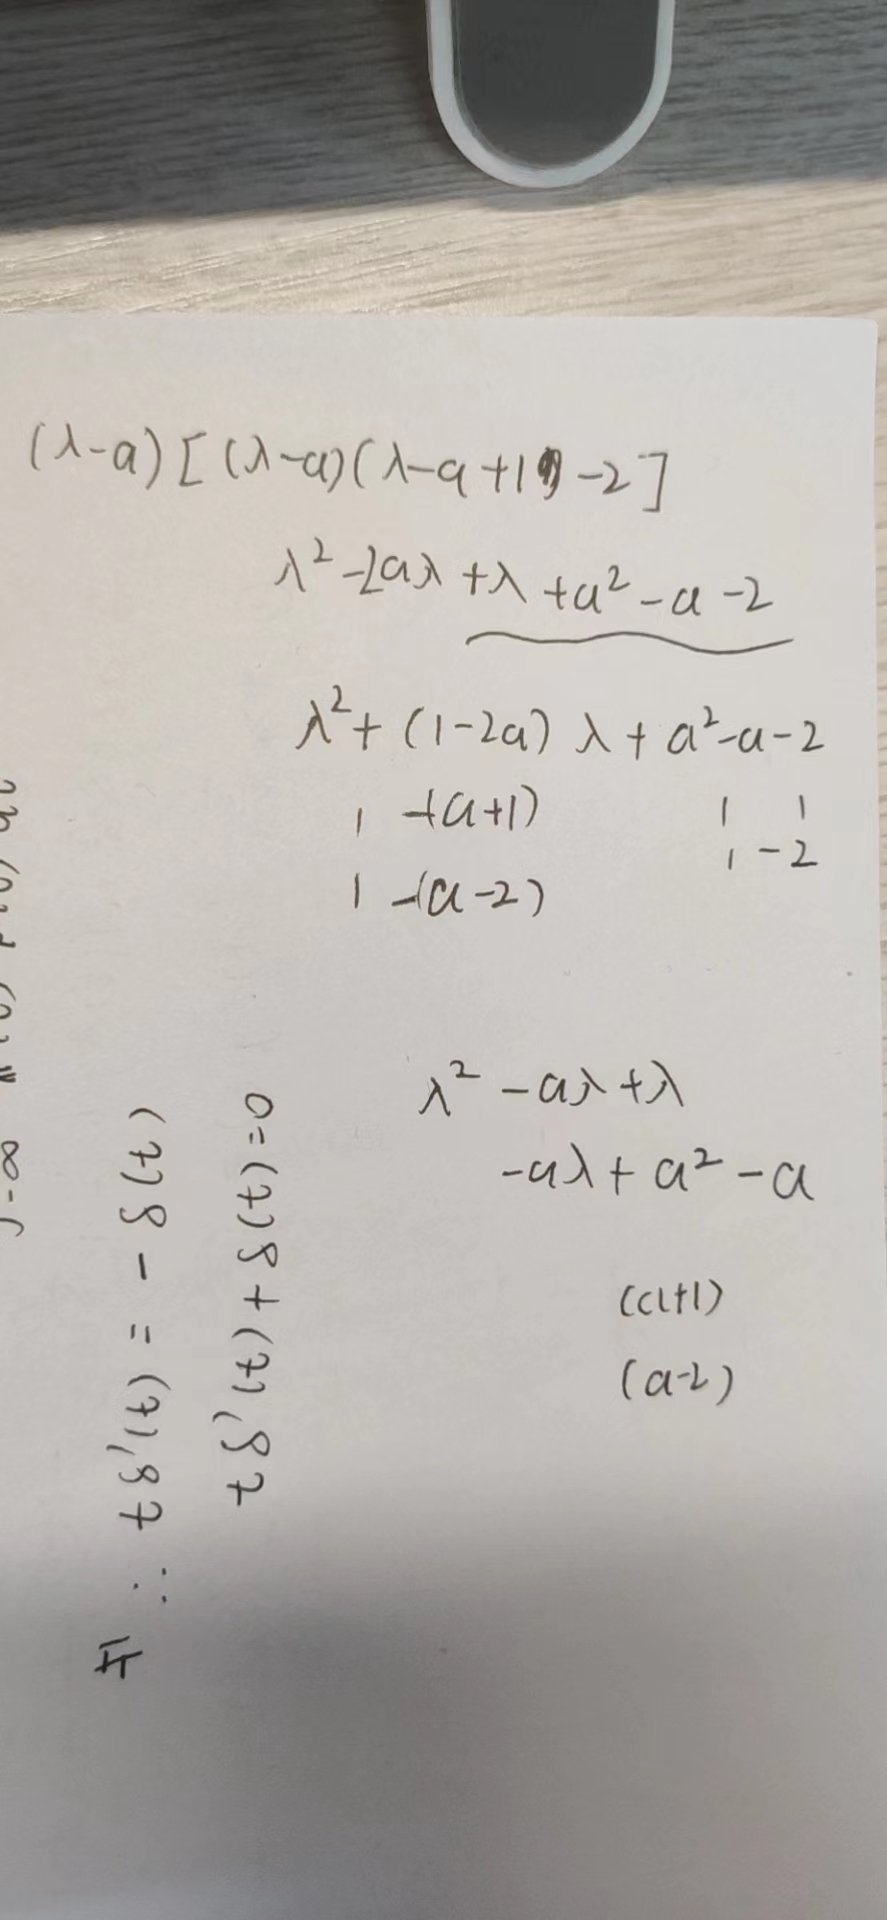 (λ-a)[(λ-a)(λ-a+1)-2]
λ²-2aλ+λ+a²-a-2
λ²+(1-2a)λ+a²-a-2
1 -(a+1) 1 1
1 -(a-2) 1 -2
λ²-aλ+λ
-aλ+a²-a
(a+1)
(a-2)
∴ tδ'(t) = -δ(t)
tδ'(t)+δ(t)=0